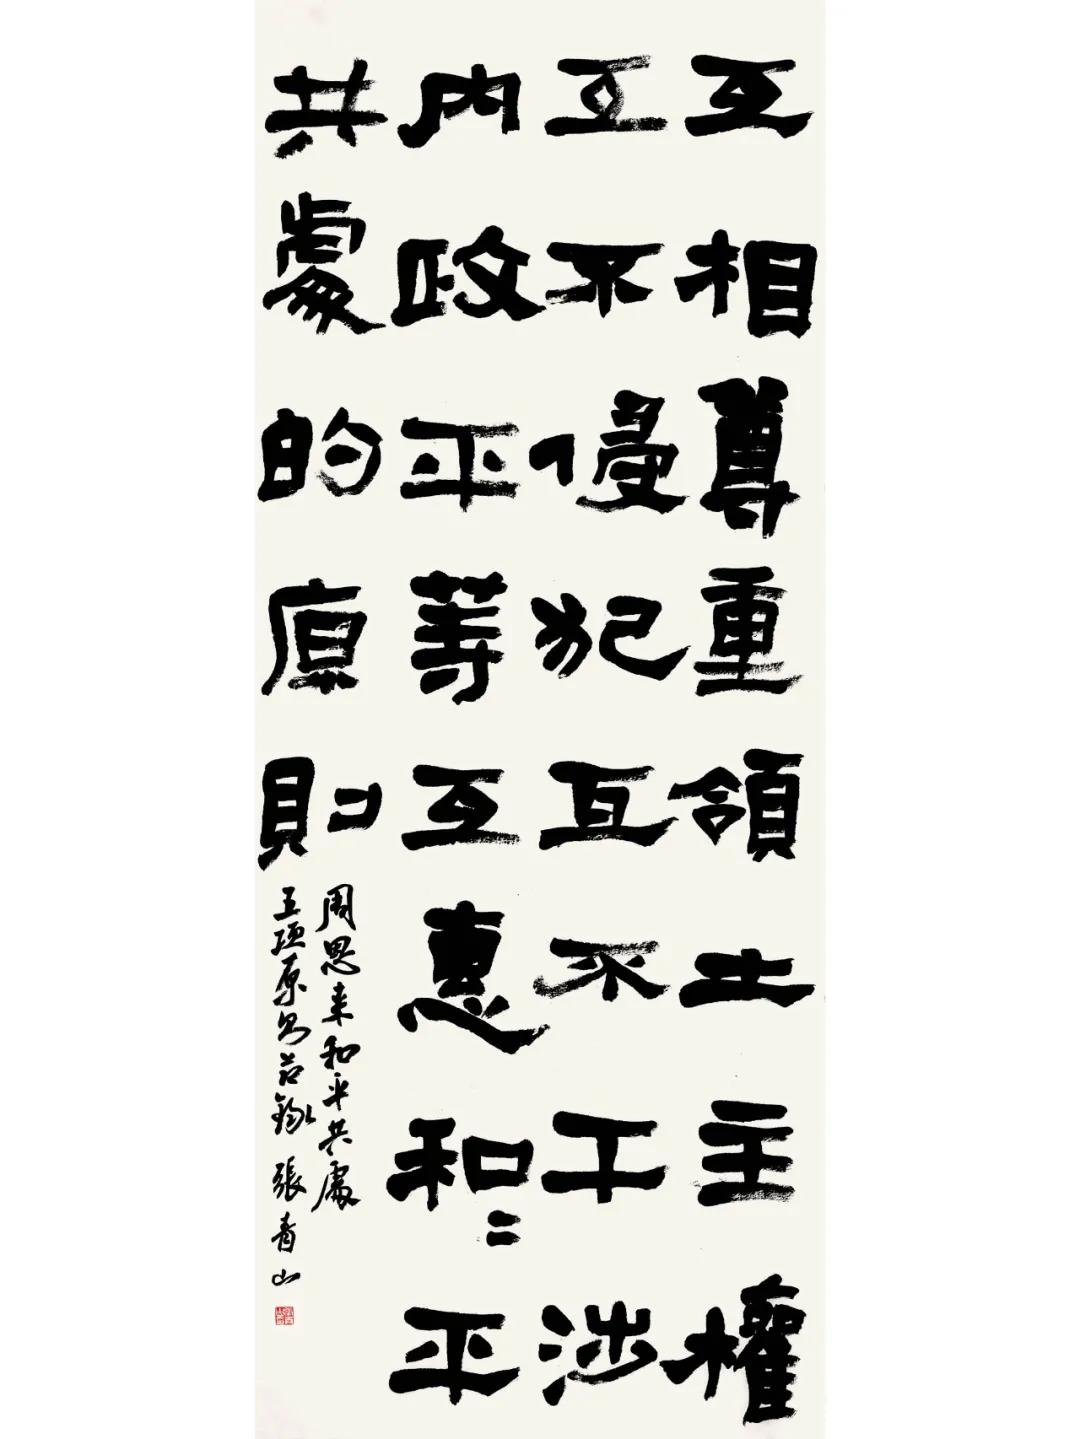 互相尊重領土主權
互不侵犯互不干涉
内政平等互惠和〻平
共處的原則
周恩来和平共處
五項原則节錄 張青山